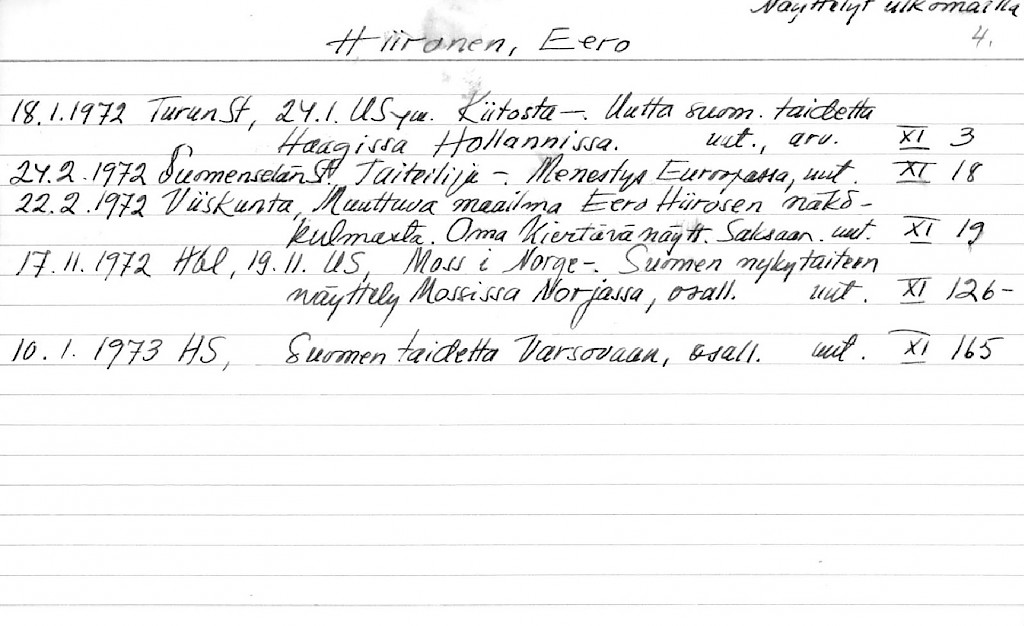 Näyttelyt ulkomailla
4.
Hiironen, Eero
18.1.1972 Turun St, 24.1. US ym. Kiitosta -. Uutta suom. taidetta
Haagissa Hollannissa. uut., arv. XI 3
24.2.1972 Suomenselän St. Taiteilija -. Menestys Euroopassa, uut. XI 18
22.2.1972 Viiskunta, Muuttuva maailma Eero Hiirosen näkö-
kulmasta. Oma Kiertävä näytt. Saksaan. uut. XI 19
17.11.1972 Hbl, 19.11. US, Moss i Norge -. Suomen nykytaiteen
näyttely Mossissa Norjassa, osall. uut. XI 126-
10.1.1973 HS, Suomen taidetta Varsovaan, osall. uut. XI 165